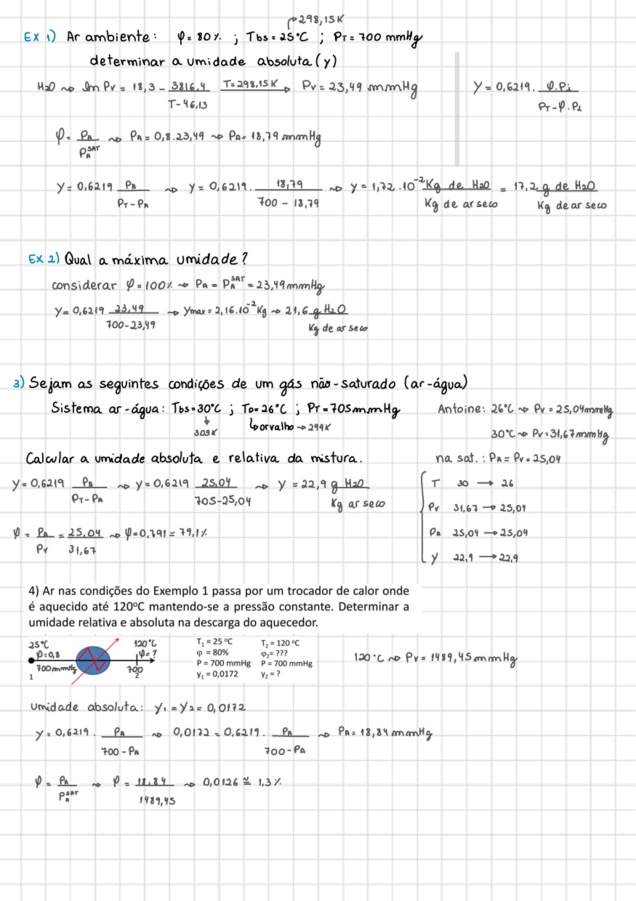 298,15K
Ex 1) Ar ambiente: φ = 80% ; Tbs = 25°C ; PT = 700 mmHg
determinar a umidade absoluta (y)
H2O ⇝ ln Pv = 18,3 - 3816,4 / T - 46,13 T = 298,15K → Pv = 23,49 mmHg Y = 0,6219 . φ.Pi / PT - φ.Pi
φ = PA / PA^SAT ⇝ PA = 0,8.23,49 ⇝ PA = 18,79 mmHg
y = 0,6219 PA / PT - PA ⇝ y = 0,6219 . 18,79 / 700 - 18,79 ⇝ y = 1,72.10^-2 Kg de H2O / Kg de ar seco = 17,2 g de H2O / Kg de ar seco
Ex 2) Qual a máxima umidade?
considerar φ = 100% ⇝ PA = PA^SAT = 23,49 mmHg
y = 0,6219 23,49 / 700 - 23,49 ⇝ ymax = 2,16.10^-2 Kg ⇝ 21,6 g H2O / Kg de ar seco
3) Sejam as seguintes condições de um gás não-saturado (ar-água)
Sistema ar-água: Tbs = 30°C ; To = 26°C ; PT = 705 mmHg Antoine: 26°C ⇝ Pv = 25,04 mmHg
303K orvalho ⇝ 299K 30°C ⇝ Pv = 31,67 mmHg
Calcular a umidade absoluta e relativa da mistura. na sat.: PA = Pv = 25,04
y = 0,6219 PA / PT - PA ⇝ y = 0,6219 25,04 / 705 - 25,04 ⇝ y = 22,9 g H2O / Kg ar seco
T 30 → 26
Pv 31,67 → 25,04
PA 25,04 → 25,04
y 22,9 → 22,9
φ = PA / Pv = 25,04 / 31,67 ⇝ φ = 0,791 = 79,1%
4) Ar nas condições do Exemplo 1 passa por um trocador de calor onde
é aquecido até 120ºC mantendo-se a pressão constante. Determinar a
umidade relativa e absoluta na descarga do aquecedor.
25°C 120°C
φ = 0,8 φ = ?
700 mmHg 700
1 2
T1 = 25 ºC T2 = 120 ºC
φ = 80% φ2 = ???
P = 700 mmHg P = 700 mmHg
y1 = 0,0172 y2 = ?
120°C ⇝ Pv = 1489,45 mmHg
umidade absoluta: y1 = y2 = 0,0172
y = 0,6219 . PA / 700 - PA ⇝ 0,0172 = 0,6219 . PA / 700 - PA ⇝ PA = 18,84 mmHg
φ = PA / PA^SAT ⇝ φ = 18,84 / 1489,45 ⇝ 0,0126 ≅ 1,3%